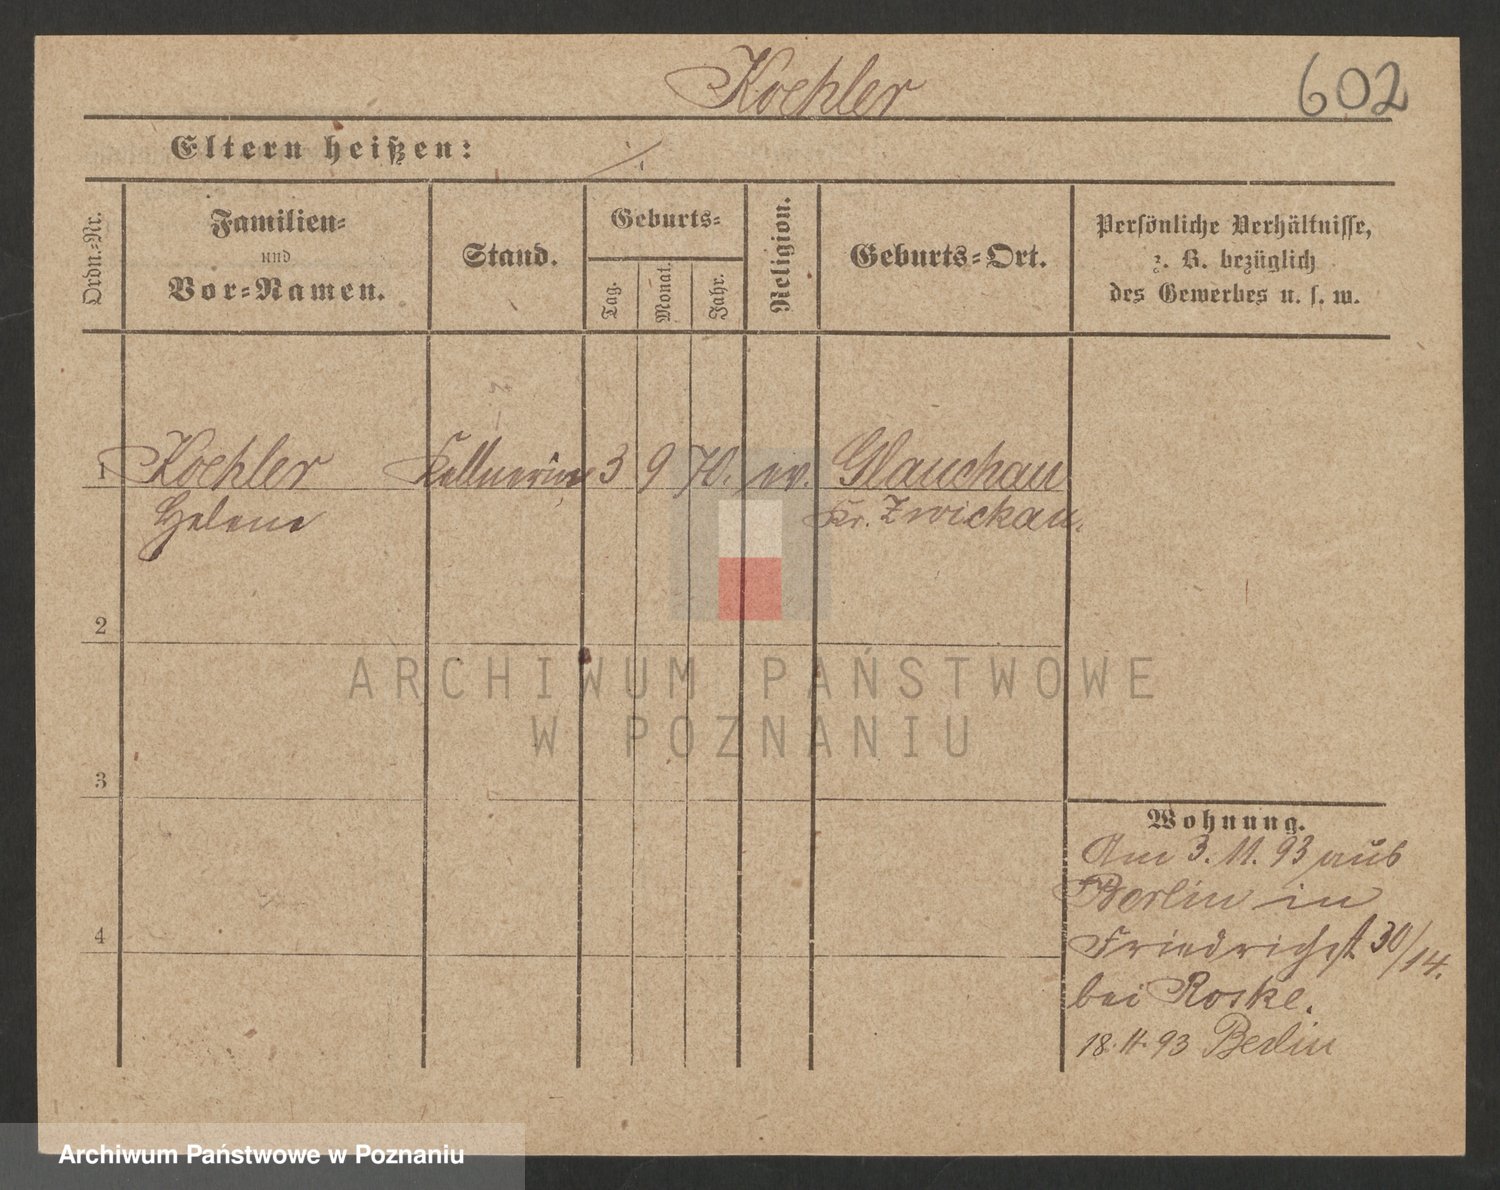 Koehler
602
Eltern heißen: ./.
Ordn.-Nr.
Familien-
und
Vor-Namen.
Stand.
Geburts-
Tag.
Monat.
Jahr.
Religion.
Geburts-Ort.
Persönliche Verhältnisse,
z. B. bezüglich
des Gewerbes u. s. w.
1 Koehler Kellnerin 3 9 70. ev. Glauchau
Helene Kr. Zwickau.
2
3
4
Wohnung.
Am 3. 11. 93 aus
Berlin in
Friedrichst 30/14.
bei Roske.
18. 11. 93 Berlin
ARCHIWUM PAŃSTWOWE
W POZNANIU
Archiwum Państwowe w Poznaniu